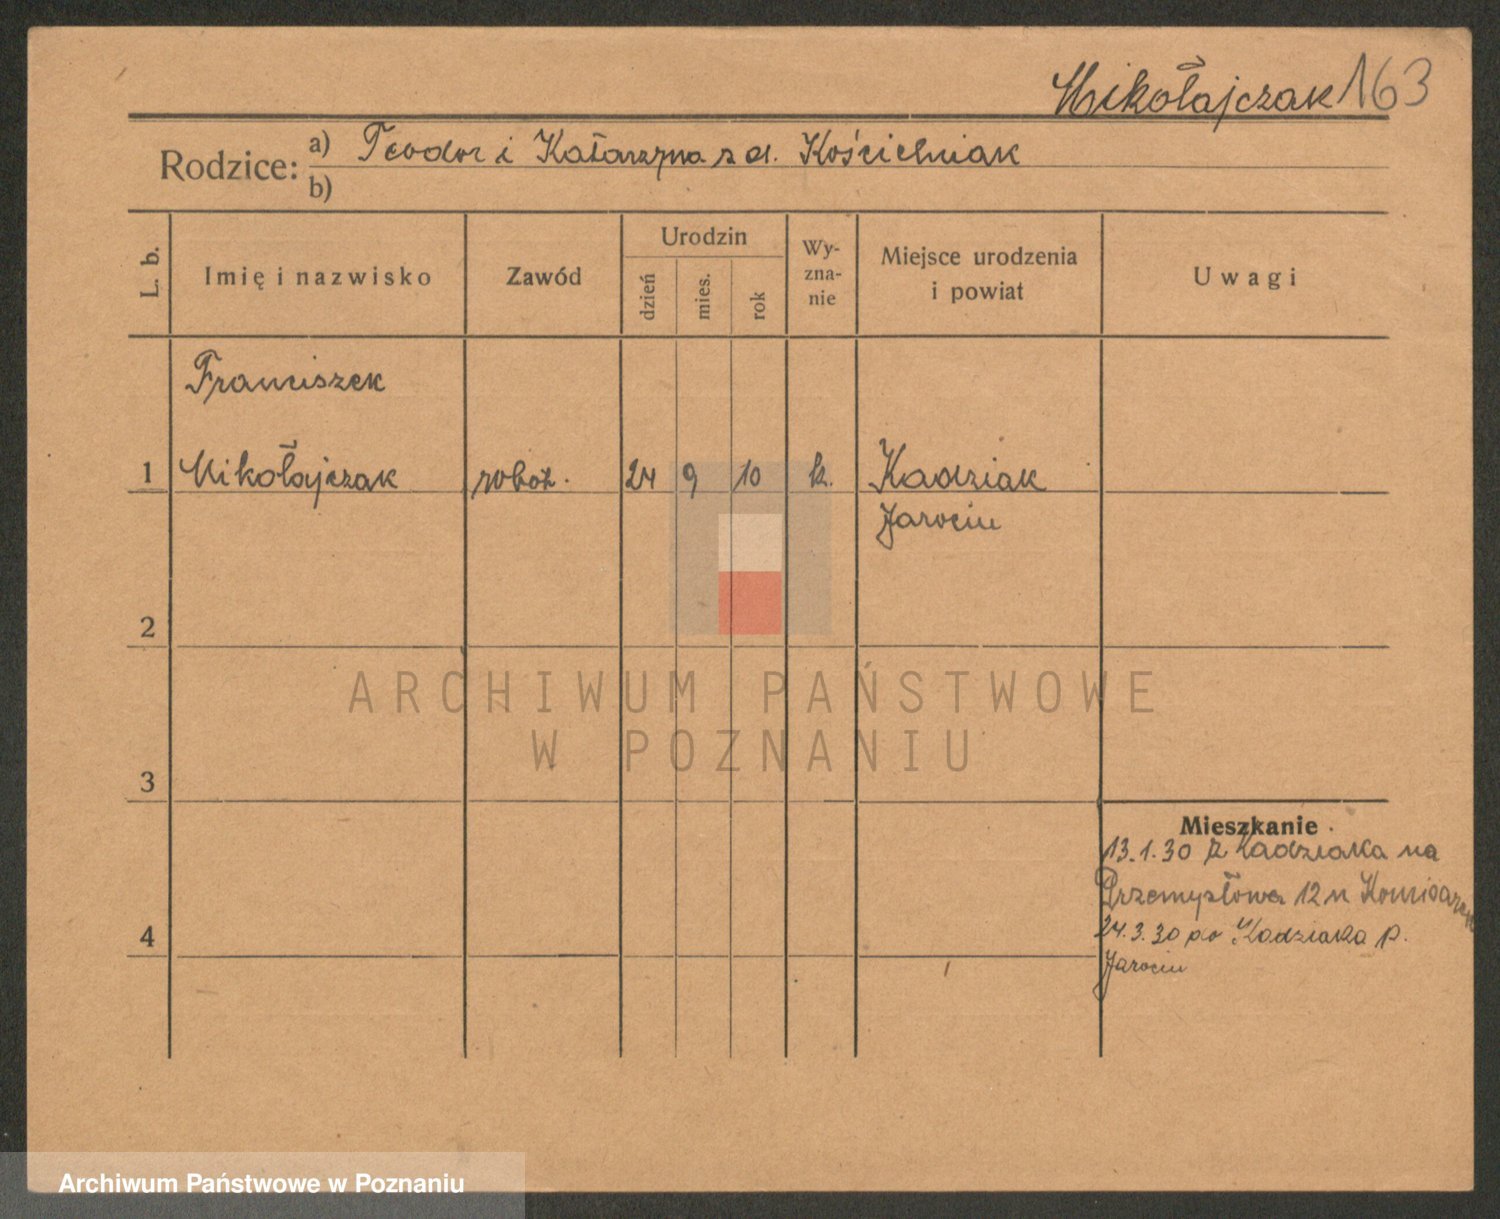 Mikołajczak 163
Rodzice: a) Teodor i Katarzyna z d. Kościelniak
b)
L. b. Imię i nazwisko Zawód Urodzin dzień mies. rok Wy-zna-nie Miejsce urodzenia i powiat Uwagi
Franciszek
1 Mikołajczak robot. 24 9 10 k. Kadziak
Jarocin
2
ARCHIWUM PAŃSTWOWE
W POZNANIU
3
Mieszkanie
13.1.30 z Kadziaka na
Przemysłowa 12 n
4 24.3.30 do Kadziaka p.
Jarocin
Archiwum Państwowe w Poznaniu